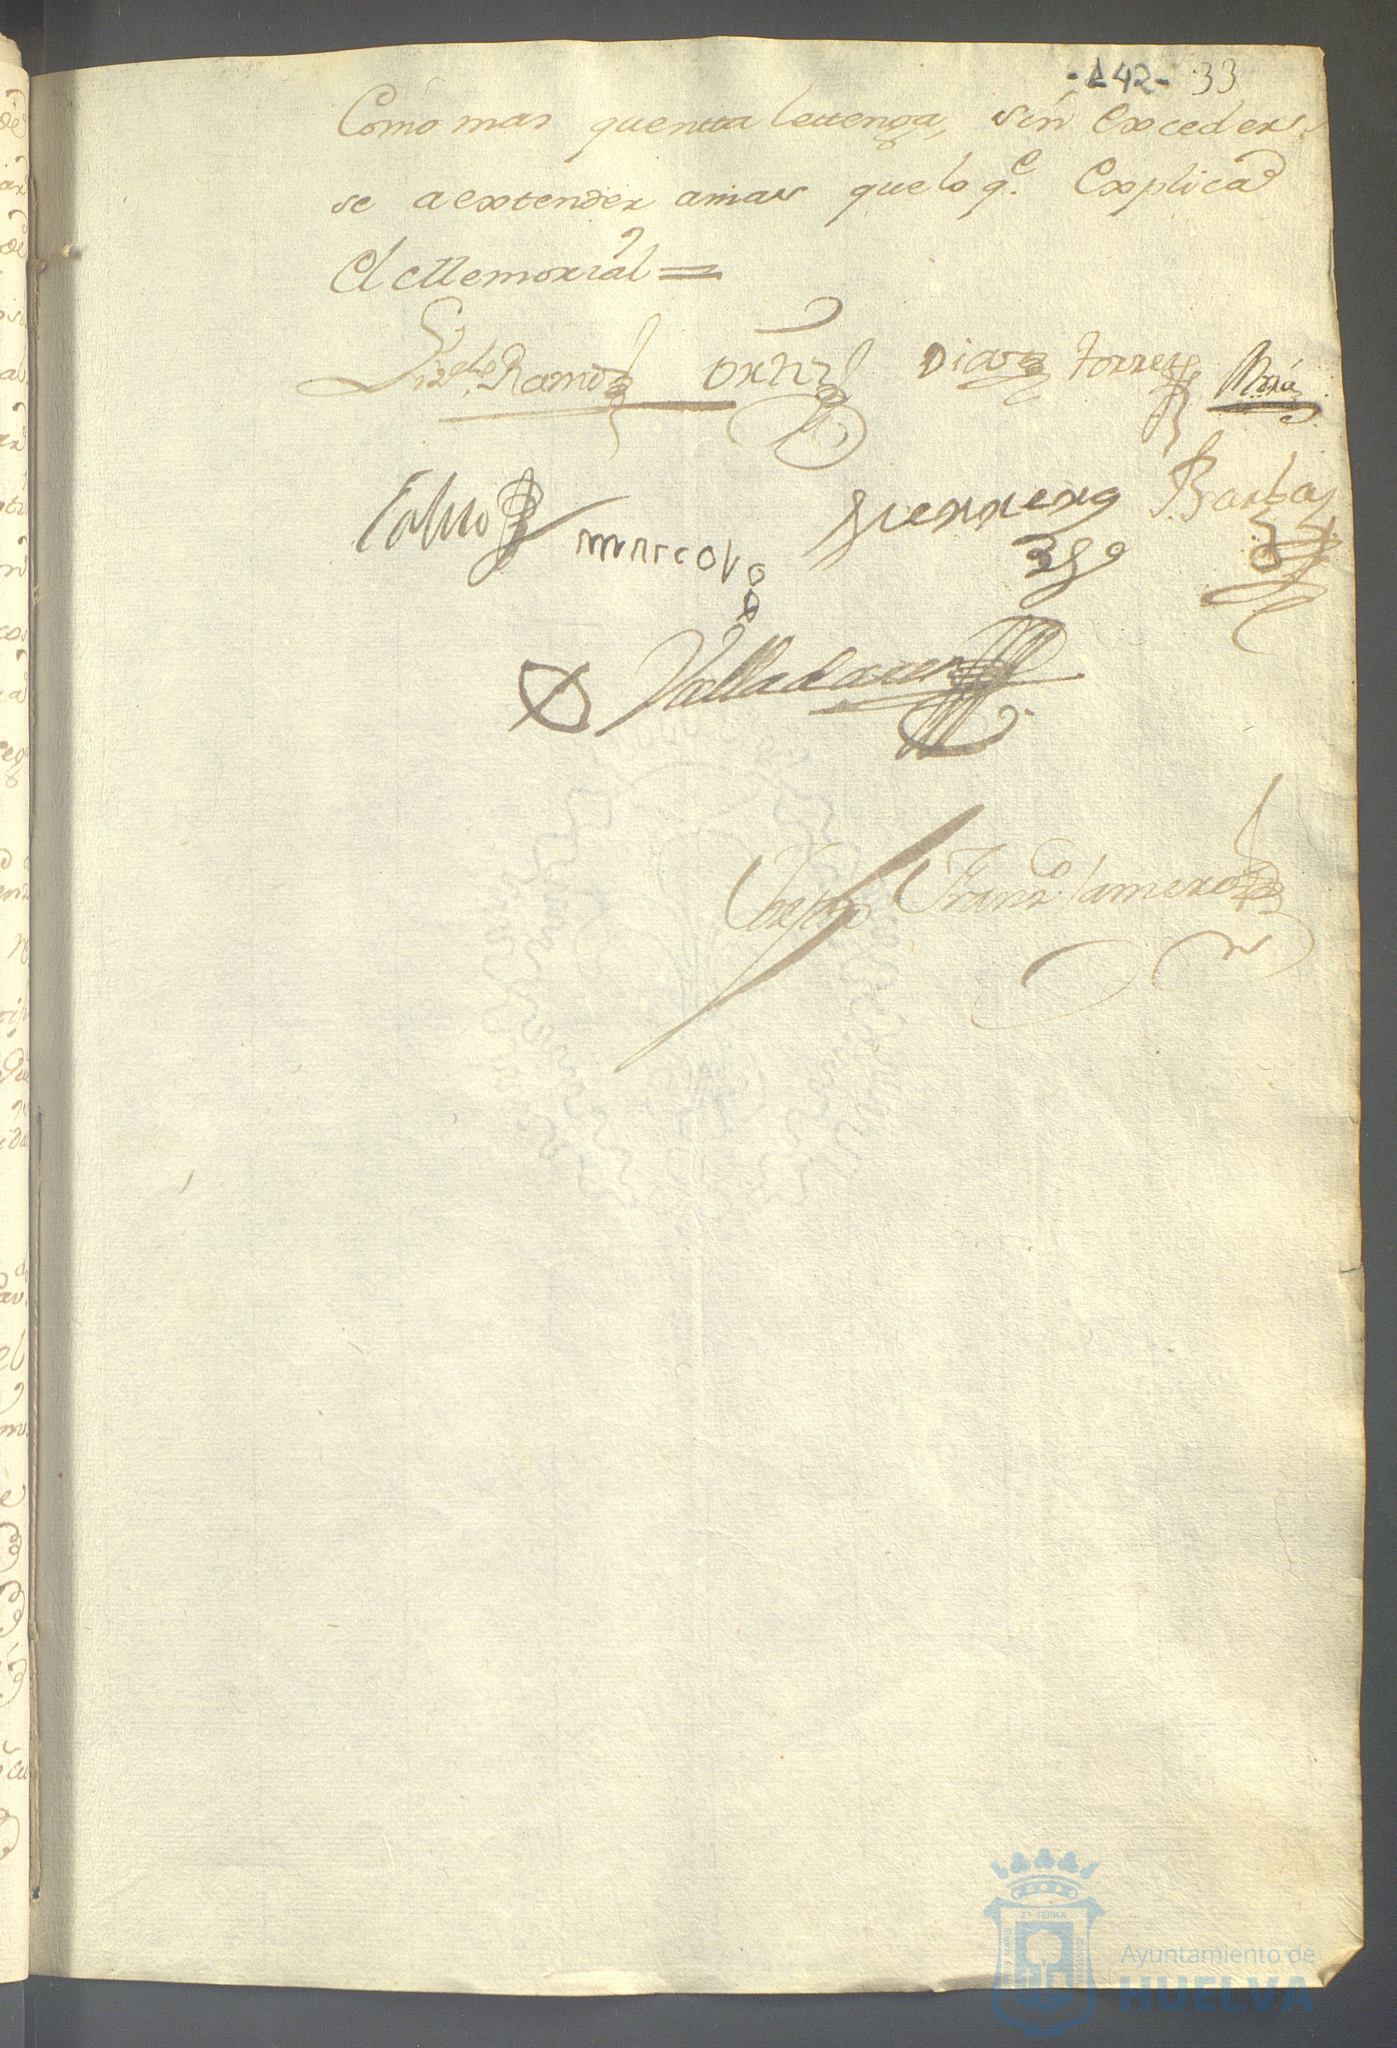 -142- 33
Como mas quentta lettenga, sin Exceder
se a extender amas que lo q.e Explicad
El Memorial =
Liz.do Ramos Ortiz Diaz Torres
Marcos Guerrero Barba
Valladares
Joseph Fran.co Camero
Ayuntamiento de
HUELVA